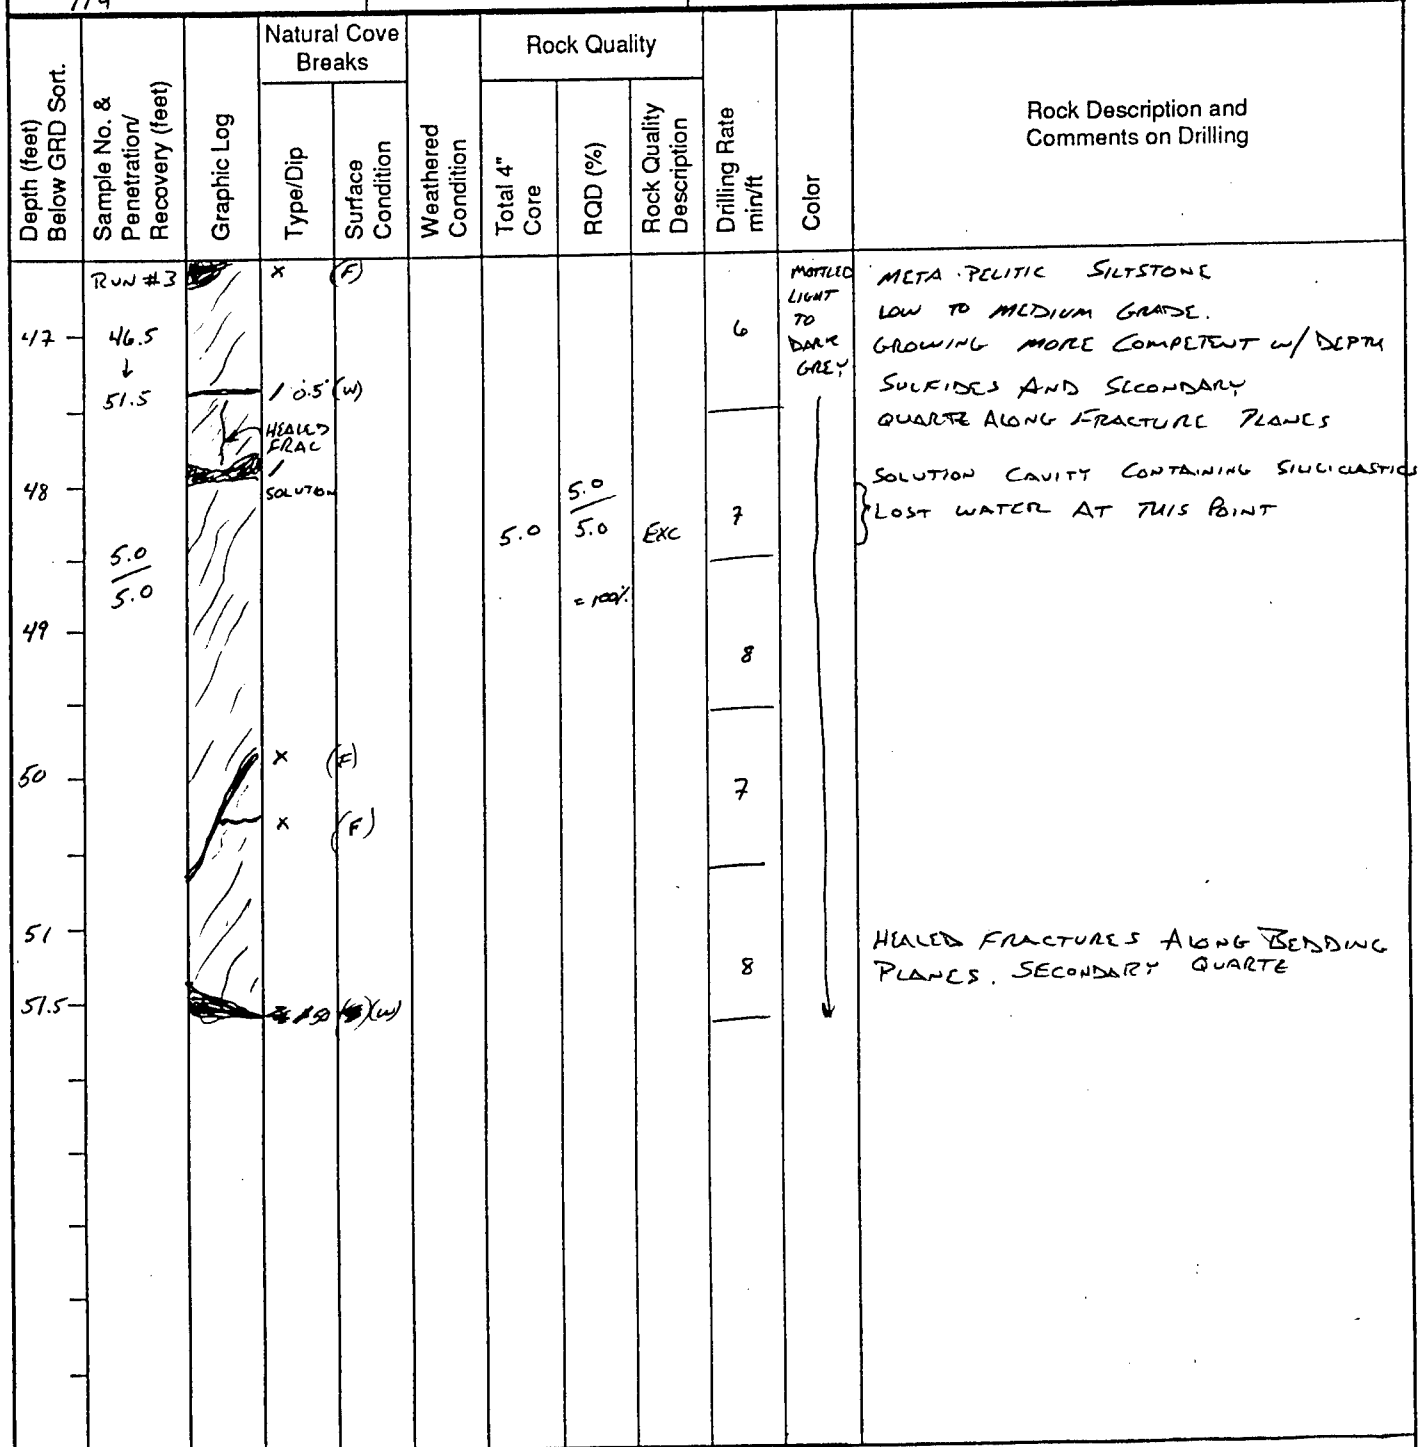 Depth (feet)
Below GRD Sort.
Sample No. &
Penetration/
Recovery (feet)
Graphic Log
Natural Cove
Breaks
Type/Dip
Surface
Condition
Weathered
Condition
Rock Quality
Total 4"
Core
RQD (%)
Rock Quality
Description
Drilling Rate
min/ft
Color
Rock Description and
Comments on Drilling
RUN #3
46.5
↓
51.5
5.0
5.0
47
48
49
50
51
51.5
x (F)
(W)
HEALED
FRAC
/
SOLUTION
x (F)
x (F)
(W)
5.0
5.0
5.0
= 100%
EXC
6
7
8
7
8
MOTTLED
LIGHT
TO
DARK
GREY
META-PELITIC SILTSTONE
LOW TO MEDIUM GRADE.
GROWING MORE COMPETENT W/ DEPTH
SULFIDES AND SECONDARY
QUARTZ ALONG FRACTURE PLANES
SOLUTION CAVITY CONTAINING SILICICLASTICS
LOST WATER AT THIS POINT
HEALED FRACTURES ALONG BEDDING
PLANES. SECONDARY QUARTZ